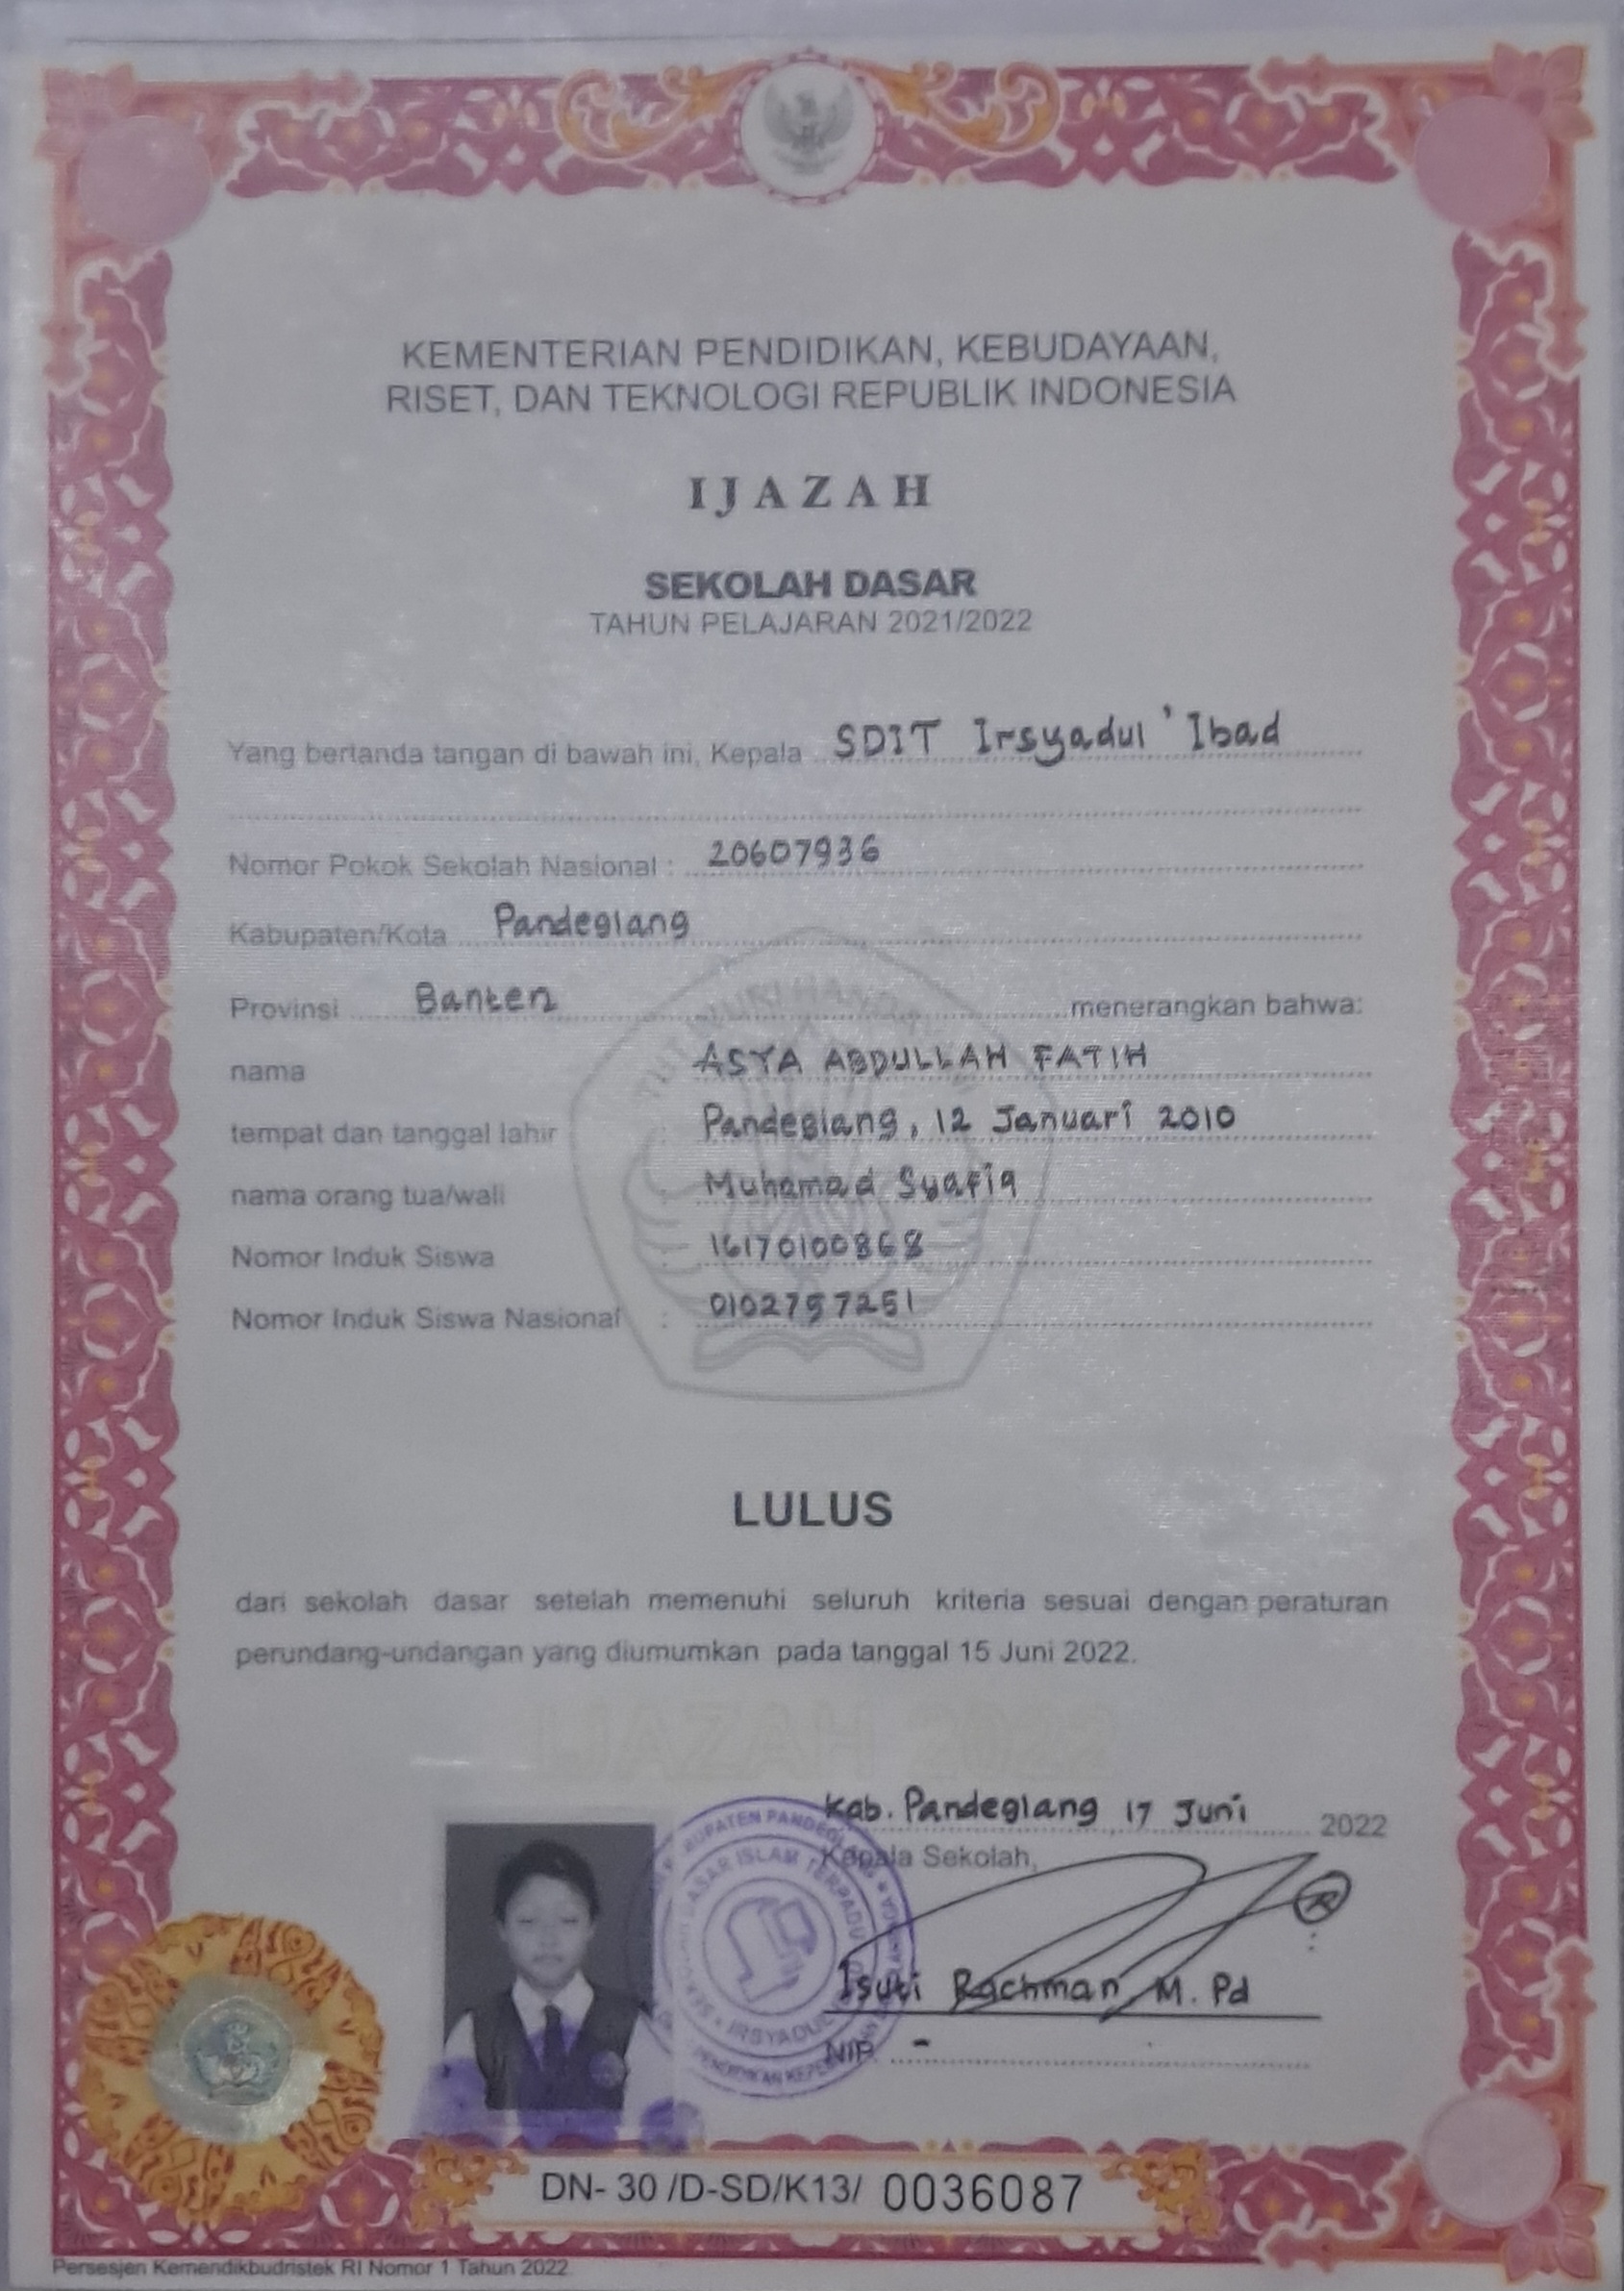 KEMENTERIAN PENDIDIKAN, KEBUDAYAAN,
RISET, DAN TEKNOLOGI REPUBLIK INDONESIA
IJAZAH
SEKOLAH DASAR
TAHUN PELAJARAN 2021/2022
Yang bertanda tangan di bawah ini, Kepala SDIT Irsyadul 'Ibad
Nomor Pokok Sekolah Nasional : 20607936
Kabupaten/Kota Pandeglang
Provinsi Banten menerangkan bahwa:
nama ASYA ABDULLAH FATIH
tempat dan tanggal lahir : Pandeglang, 12 Januari 2010
nama orang tua/wali : Muhamad Syafiq
Nomor Induk Siswa : 16170100868
Nomor Induk Siswa Nasional : 0102757251
LULUS
dari sekolah dasar setelah memenuhi seluruh kriteria sesuai dengan peraturan
perundang-undangan yang diumumkan pada tanggal 15 Juni 2022.
IJAZAH 2022
Kab. Pandeglang, 17 Juni 2022
Kepala Sekolah,
Isuti Rachman, M.Pd
NIP. -
DN- 30 /D-SD/K13/ 0036087
Persesjen Kemendikbudristek RI Nomor 1 Tahun 2022